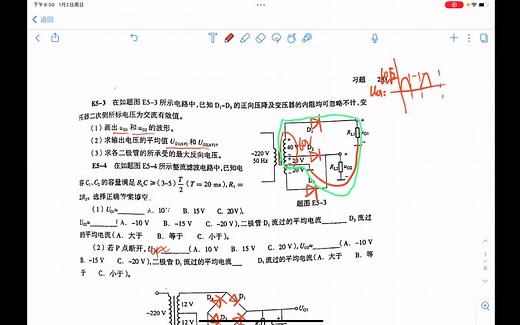 下午8:50 1月2日周日
返回
习题
E5-3 在如题图 E5-3 所示电路中,已知 D₁~D₃ 的正向压降及变压器的内阻均可忽略不计,变
压器二次侧所标电压为交流有效值。
(1) 画出 u_O1 和 u_O2 的波形。
(2) 求输出电压的平均值 U_O1(AV) 和 U_O2(AV)。
(3) 求各二极管的所承受的最大反向电压。
E5-4 在题图 E5-4 所示整流滤波电路中,已知电
选择正确答案填空。
A. 10V B. 15V C. 20V),
(A. -10 V B. -15 V C. -20 V),二极管 D₁ 流过的平均电流 D₂ 流过
的平均电流(A. 大于 B. 等于 C. 小于)。
(2) 若 P 点断开,
(A. 10 V B. 15 V C. 20 V),
(A. -10 V
B. -15 V C. -20 V),二极管 D₁ 流过的平均电流 D₂ 流过的平均电流(A. 大于 B. 等
于 C. 小于)。
~220 V
50 Hz
40 V
20 V
20 V
D₁
D₂
R_L1
u_O1
R_L2
u_O2
题图 E5-3
~220 V
12 V
12 V
D₁
U_O1